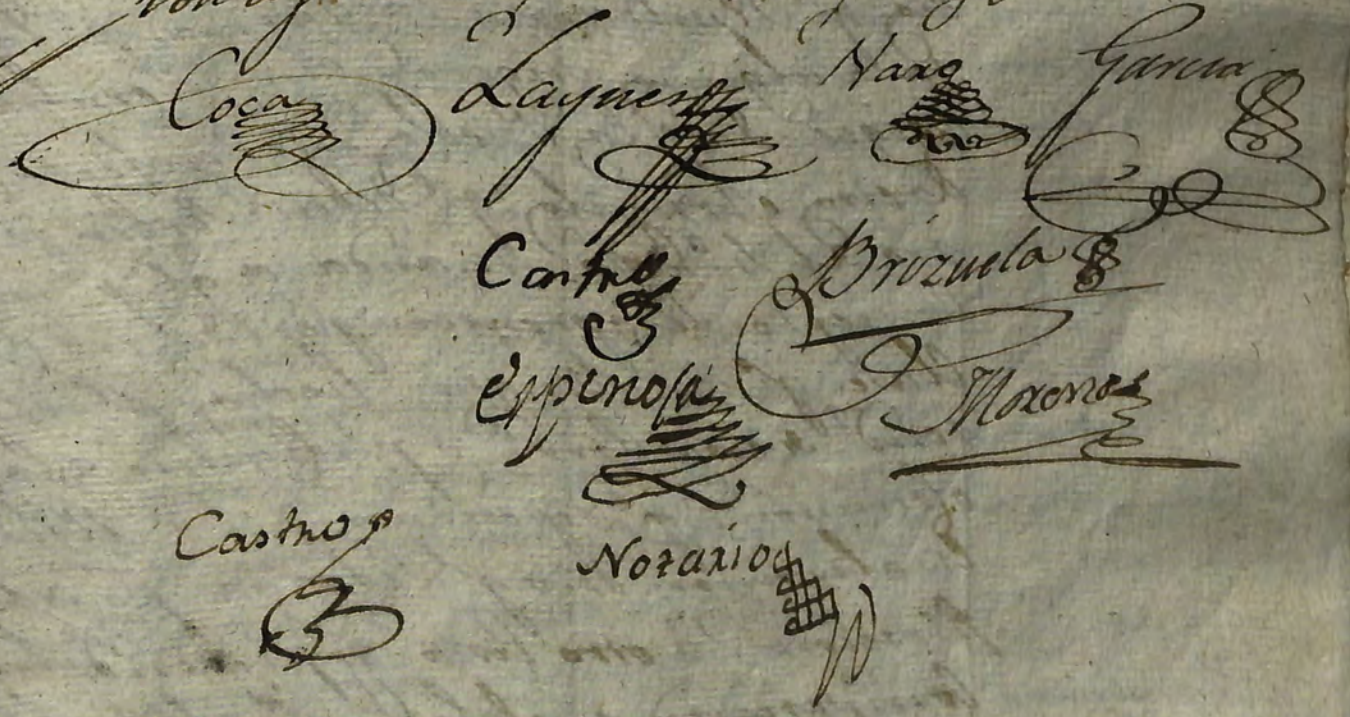 Coca Laguer Naxo Garcia
Castro Brizuela
Espinosa Moreno
Castro Notario